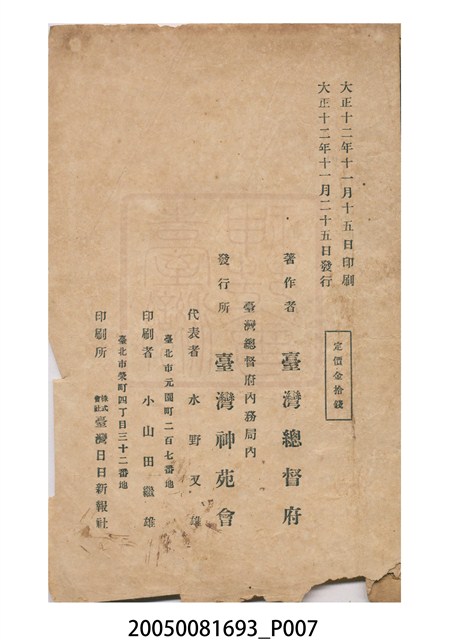 大正十二年十一月十五日印刷
大正十二年十一月二十五日發行
定價金拾錢
著作者 臺灣總督府
臺灣總督府內務局內
發行所 臺灣神苑會
代表者 水野叉雄
臺北市元園町二百七番地
印刷者 小山田繼雄
臺北市榮町四丁目三十二番地
印刷所 株式會社臺灣日日新報社
20050081693_P007